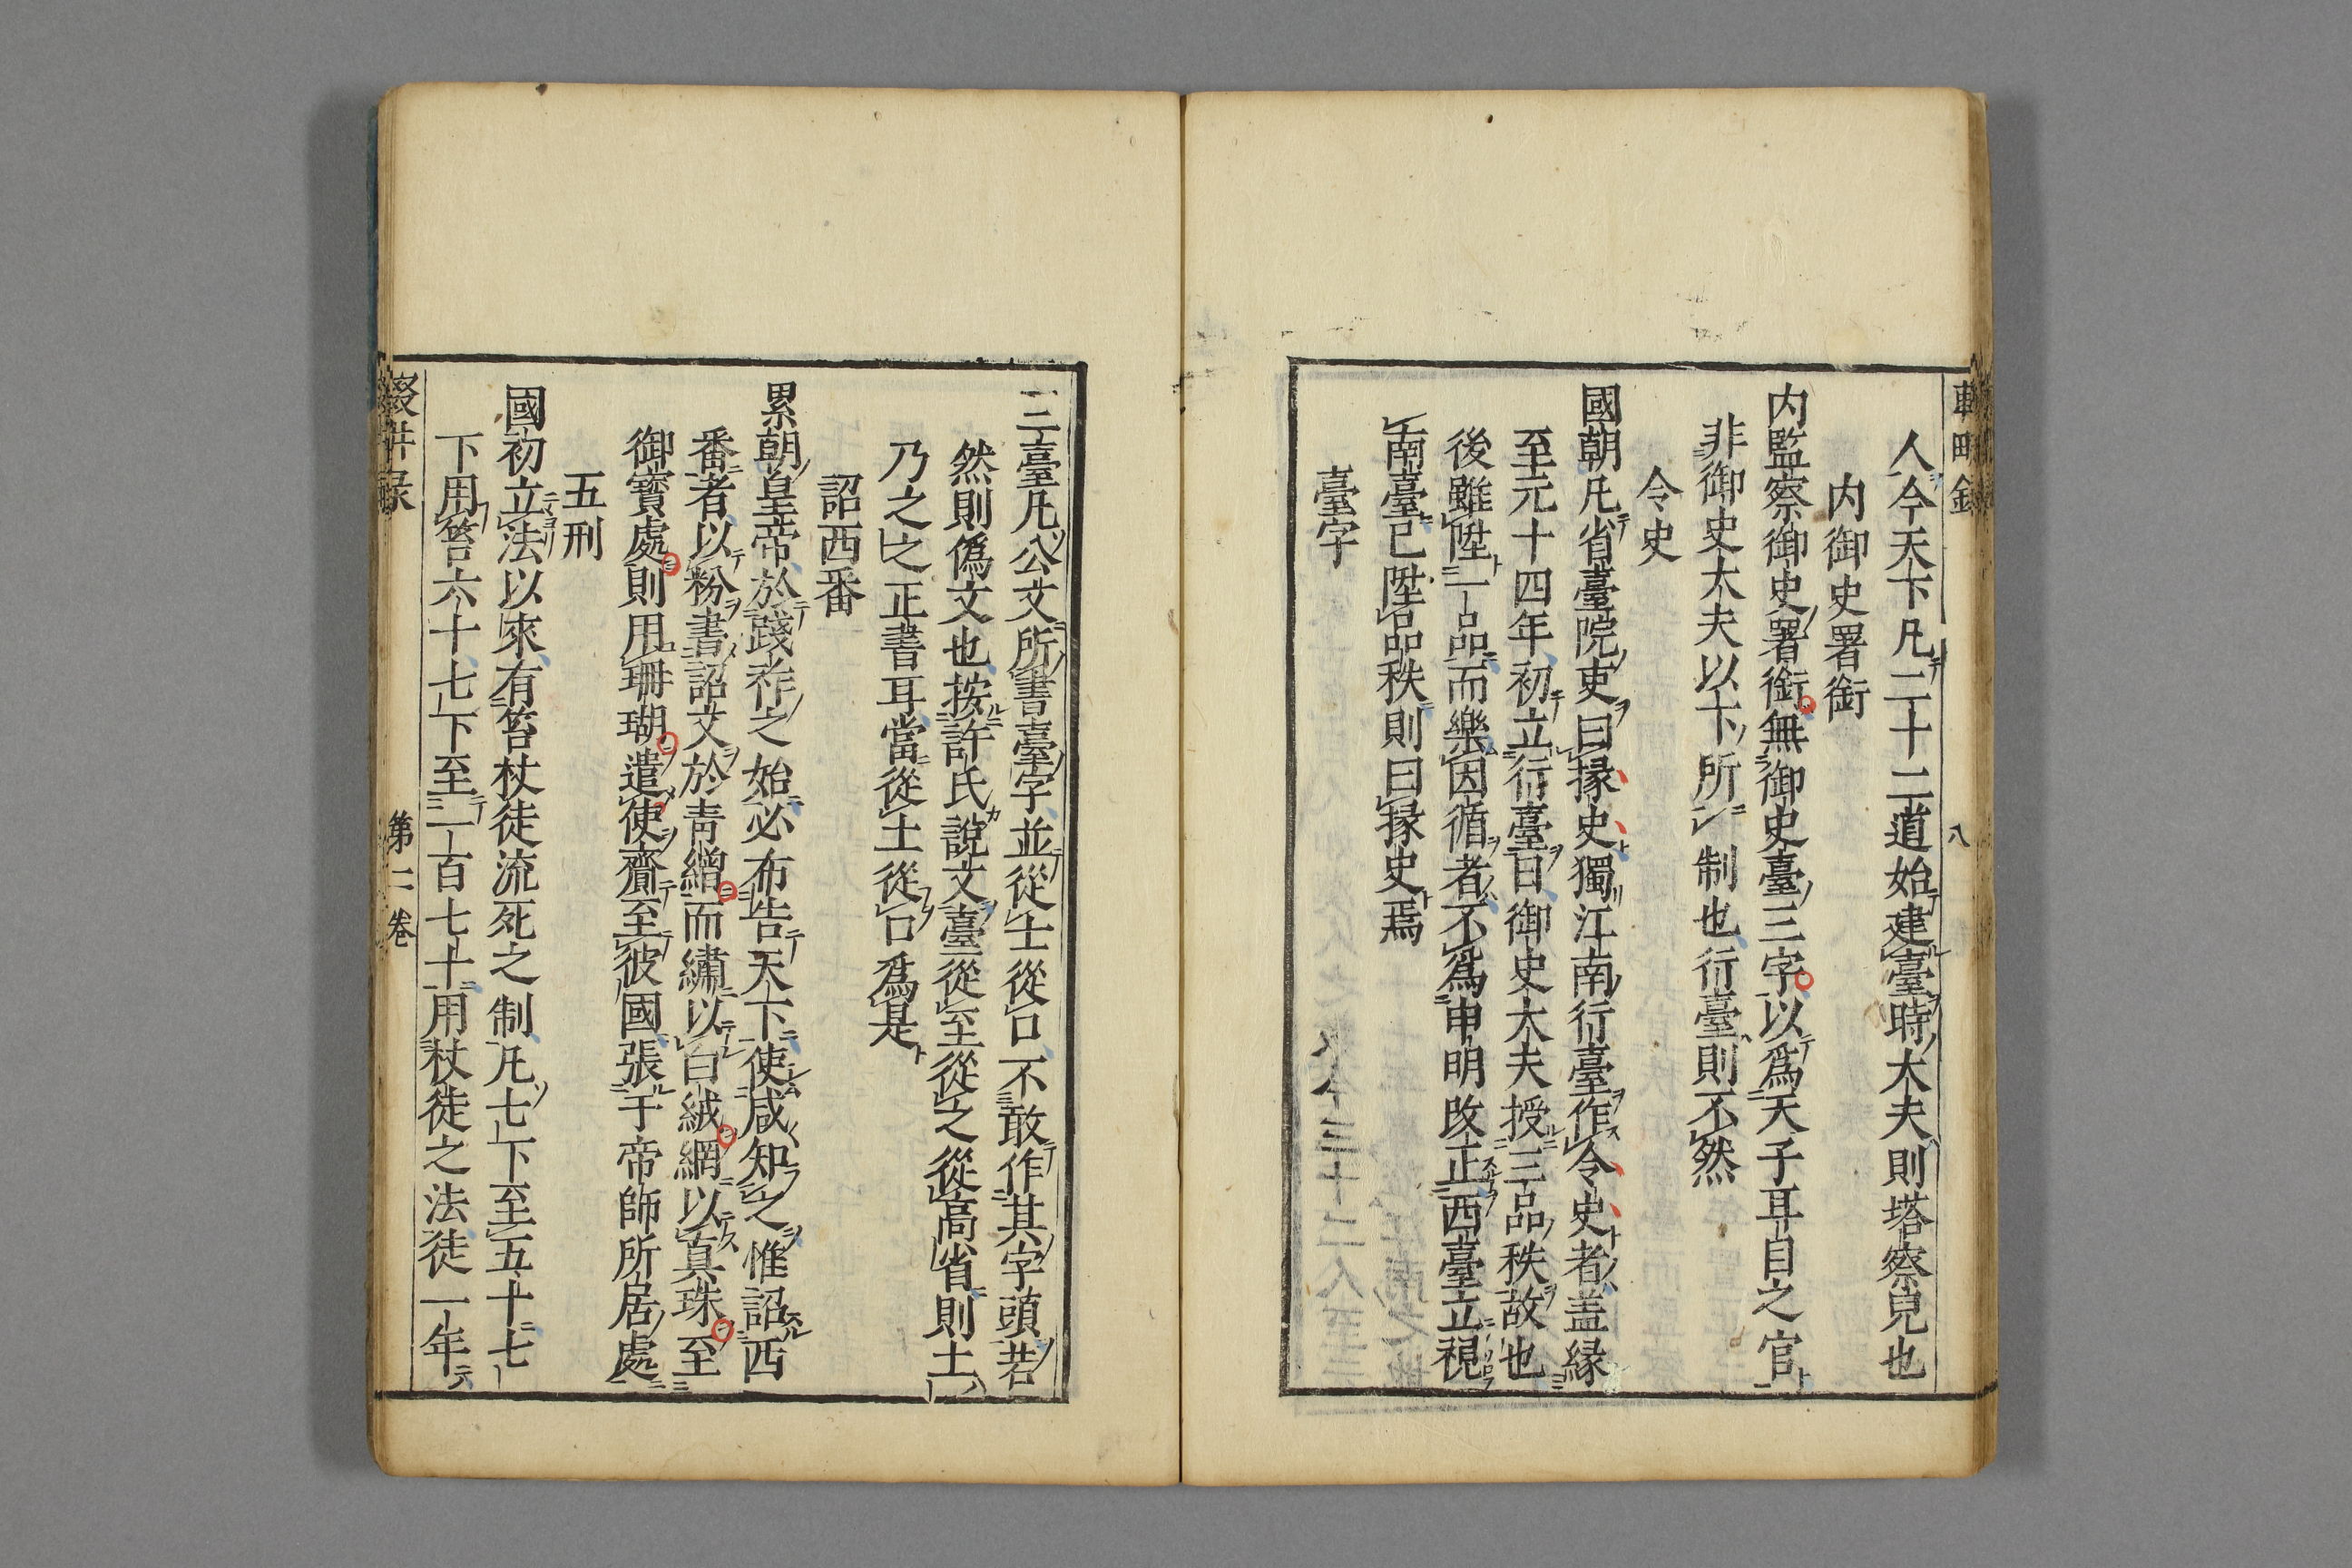 人今天下凡二十二道始建臺時大夫則塔察兒也
内御史署銜
内監察御史署銜無御史臺三字以爲天子耳目之官
非御史大夫以下所制也行臺則不然
令史
國朝凡省臺院吏曰掾史獨江南行臺作令史者盖緣
至元十四年初立行臺日御史大夫授三品秩故也
後雖陞一品而樂因循者不爲申明改正西臺立視
南臺已陞品秩則曰掾史焉
臺字
三臺凡公文所書臺字並從士從口不敢作其字頭若
然則僞文也按許氏說文臺從至從之從高省則士
乃之之正書耳當從土從口爲是
詔西番
累朝皇帝於踐祚之始必布告天下使咸知之惟詔西
番者以粉書詔文於青繒而繡以白絨網以真珠至
御寶處則用珊瑚遣使齎至彼國張于帝師所居處
五刑
國初立法以來有笞杖徒流死之制凡七下至五十七
下用笞六十七下至一百七十用杖徒之法徒一年
輟畊録
第二卷
八